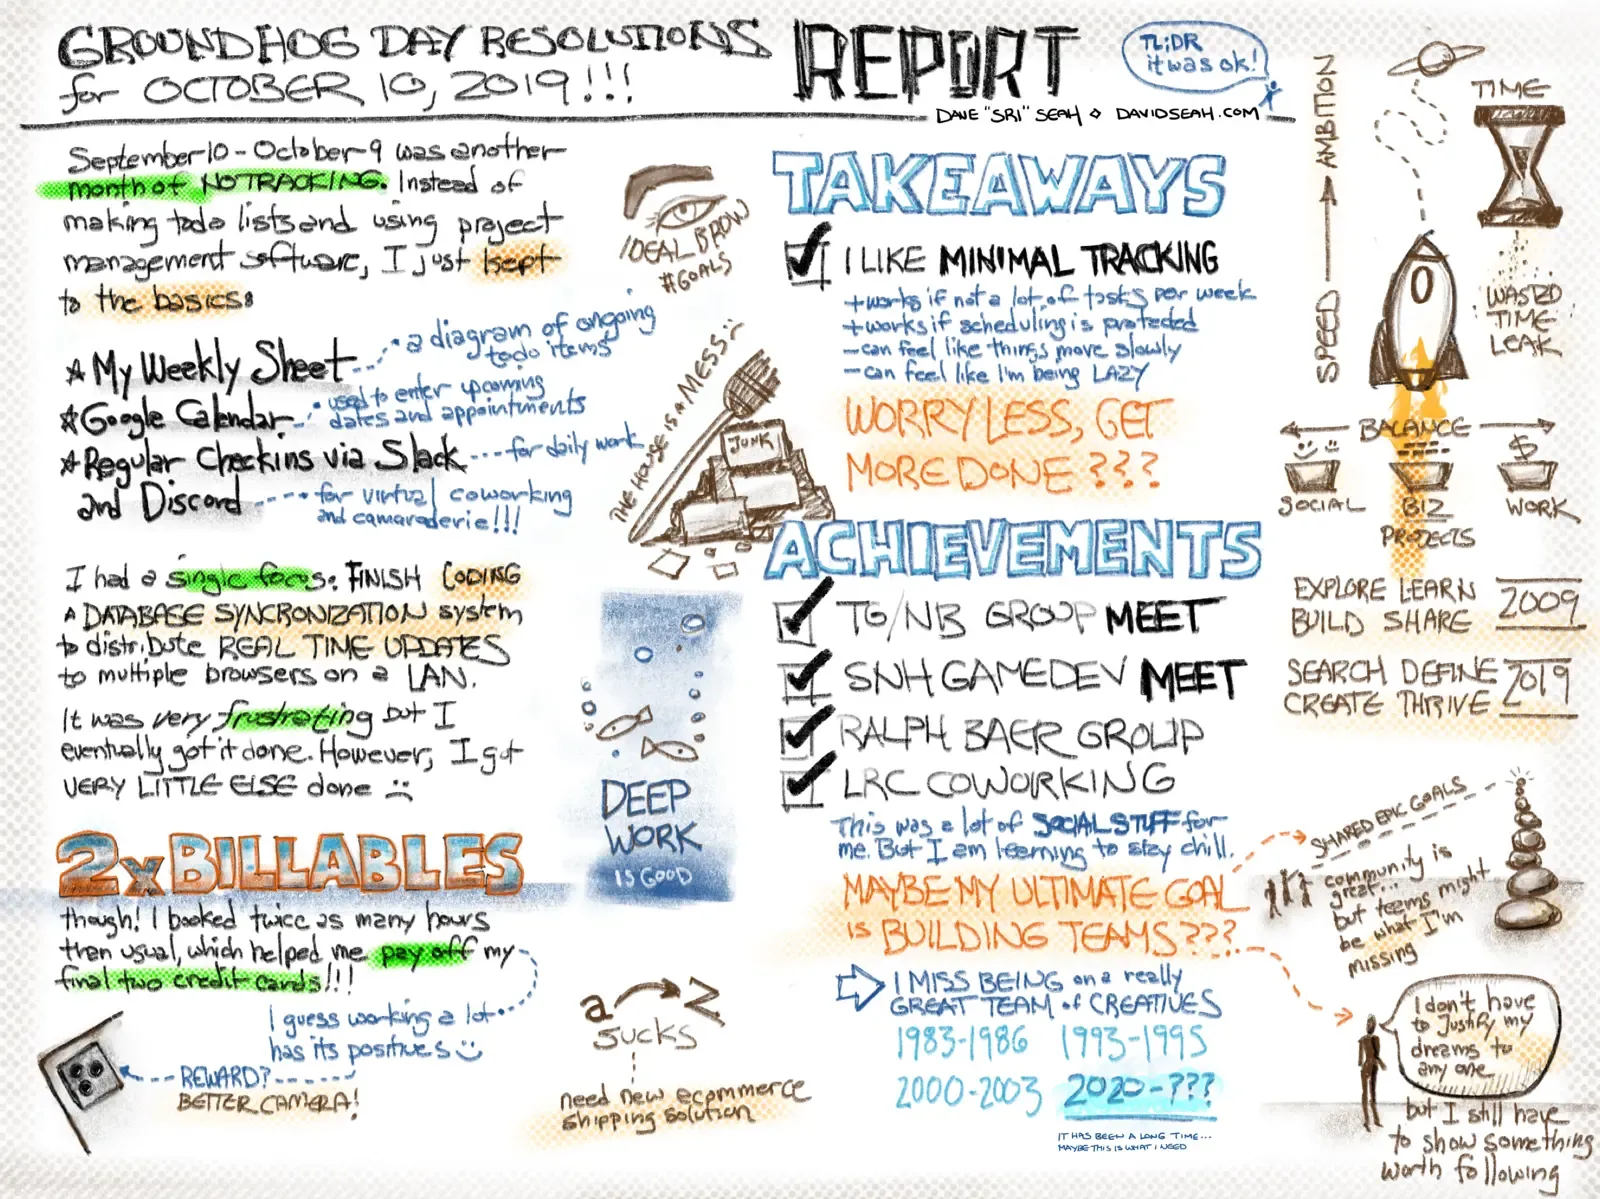 GROUNDHOG DAY RESOLUTIONS
for OCTOBER 10, 2019!!!
REPORT
TL;DR
it was ok!
DAVE "SRI" SEAH ◇ DAVIDSEAH.COM
September 10 - October 9 was another
month of NO TRACKING. Instead of
making todo lists and using project
management software, I just kept
to the basics:
★ My Weekly Sheet
• a diagram of ongoing
todo items
★ Google Calendar
• used to enter upcoming
dates and appointments
★ Regular Checkins via Slack
• for daily work
and Discord
• for virtual coworking
and camaraderie!!!
I had a single focus: FINISH CODING
A DATABASE SYNCRONIZATION system
to distribute REAL TIME UPDATES
to multiple browsers on a LAN.
It was very frustrating but I
eventually got it done. However, I got
VERY LITTLE ELSE done :(
2x BILLABLES
though! I booked twice as many hours
then usual, which helped me pay off my
final two credit cards!!!
I guess working a lot
has its positives :)
REWARD?
BETTER CAMERA!
IDEAL BROW
#GOALS
THE HOUSE IS A MESS :(
JUNK
DEEP
WORK
IS GOOD
a Z
SUCKS
need new ecommerce
shipping solution
TAKEAWAYS
I LIKE MINIMAL TRACKING
+ works if not a lot of tasks per week
+ works if scheduling is protected
- can feel like things move slowly
- can feel like I'm being LAZY
WORRY LESS, GET
MORE DONE ???
ACHIEVEMENTS
TG/NB GROUP MEET
SNH GAMEDEV MEET
RALPH BAER GROUP
LRC COWORKING
This was a lot of SOCIAL STUFF for
me. But I am learning to stay chill.
MAYBE MY ULTIMATE GOAL
is BUILDING TEAMS???
I MISS BEING on a really
GREAT TEAM of CREATIVES
1983-1986 1993-1995
2000-2003 2020-???
IT HAS BEEN A LONG TIME...
MAYBE THIS IS WHAT I NEED
SPEED
AMBITION
TIME
WASTED
TIME
LEAK
BALANCE
$
SOCIAL
BIZ
PROJECTS
WORK
EXPLORE LEARN
BUILD SHARE
2009
SEARCH DEFINE
CREATE THRIVE
2019
SHARED EPIC GOALS
community is
great...
but teams might
be what I'm
missing
I don't have
to justify my
dreams to
any one
but I still have
to show something
worth following